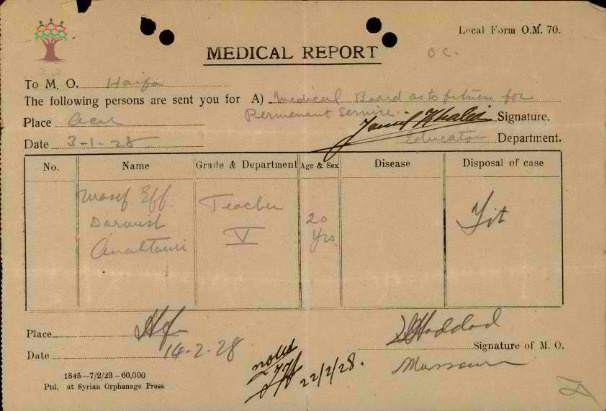 Local Form O.M. 70.
MEDICAL REPORT
O C.
To M. O. Haifa
The following persons are sent you for A) Medical Board as to fitness for
Permanent Service
Signature.
Place Acre
Date 3-1-28
Education Department.
No. Name Grade & Department Age & Sex Disease Disposal of case
Wasif Eff. Teacher 20 Fit
Darwish V Yrs
Place
Haddad
Signature of M. O.
Date 14-2-28
noted
22/2/28.
1845—7/2/23—60,000
Ptd. at Syrian Orphanage Press